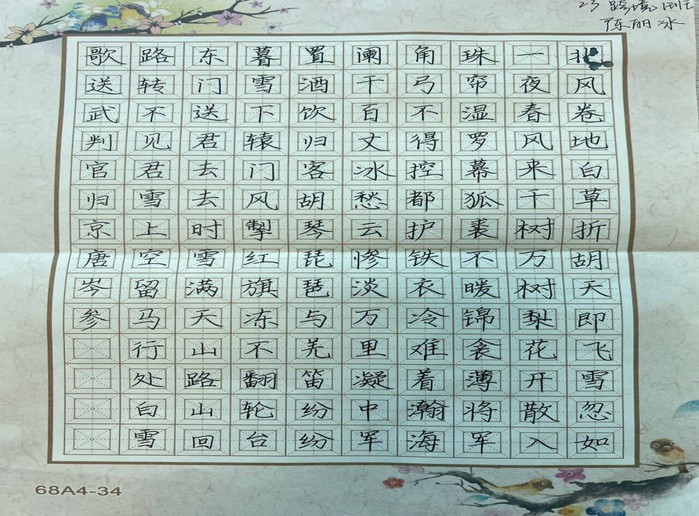 23 跨境1班
陈丽冰
北风卷地白草折胡天即飞雪忽如
一夜春风来千树万树梨花开散入
珠帘湿罗幕狐裘不暖锦衾薄将军
角弓不得控都护铁衣冷难着瀚海
阑干百丈冰愁云惨淡万里凝中军
置酒饮归客胡琴琵琶与羌笛纷纷
暮雪下辕门风掣红旗冻不翻轮台
东门送君去去时雪满天山路山回
路转不见君雪上空留马行处白雪
歌送武判官归京唐岑参
68A4-34